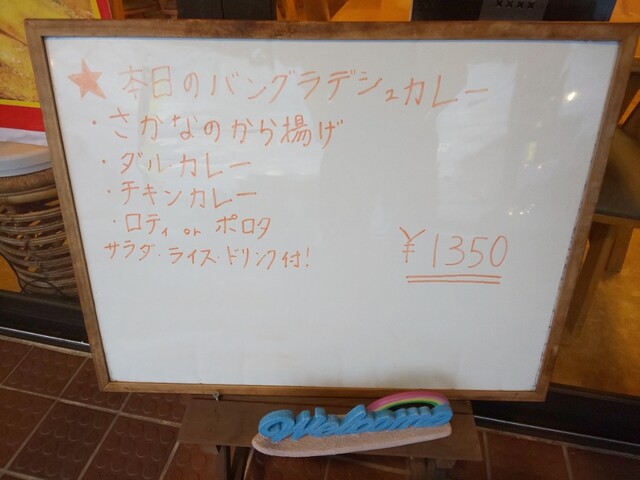 ★本日のバングラデシュカレー
・さかなのから揚げ
・ダル・カレー
・チキンカレー
・ロティ or ポロタ
サラダ・ライス・ドリンク付!
¥1350
Welcome